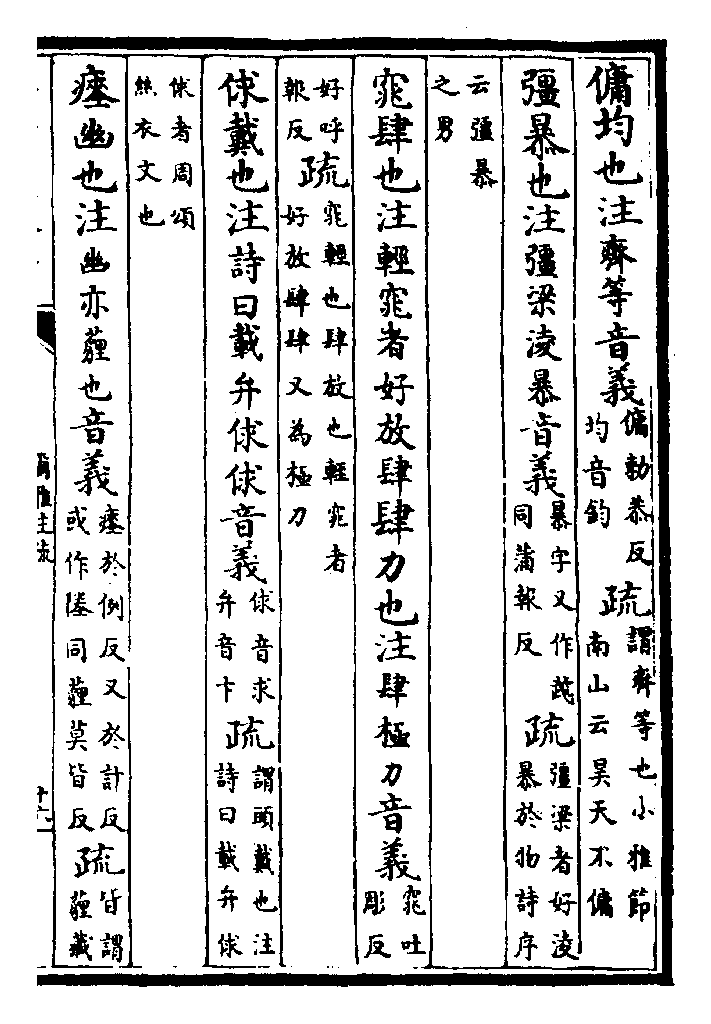 傭均也注齊等音義傭勅恭反均音鈞疏謂齊等也小雅節南山云昊天不傭
彊暴也注彊梁淩暴音義暴字又作同蒲報反疏彊梁者好淩暴於物詩序
云彊暴之男
窕肆也注輕窕者好放肆肆力也注肆極力音義窕吐彫反
好呼報反疏窕輕也肆放也輕窕者好放肆肆又為極力
俅戴也注詩曰載弁俅俅音義俅音求弁音卞疏謂頭戴也注詩曰載弁俅
俅者周頌絲衣文也
瘞幽也注幽亦薶也音義瘞於例反又於計反或作同薶莫皆反疏皆謂薶藏
爾雅注疏
十六